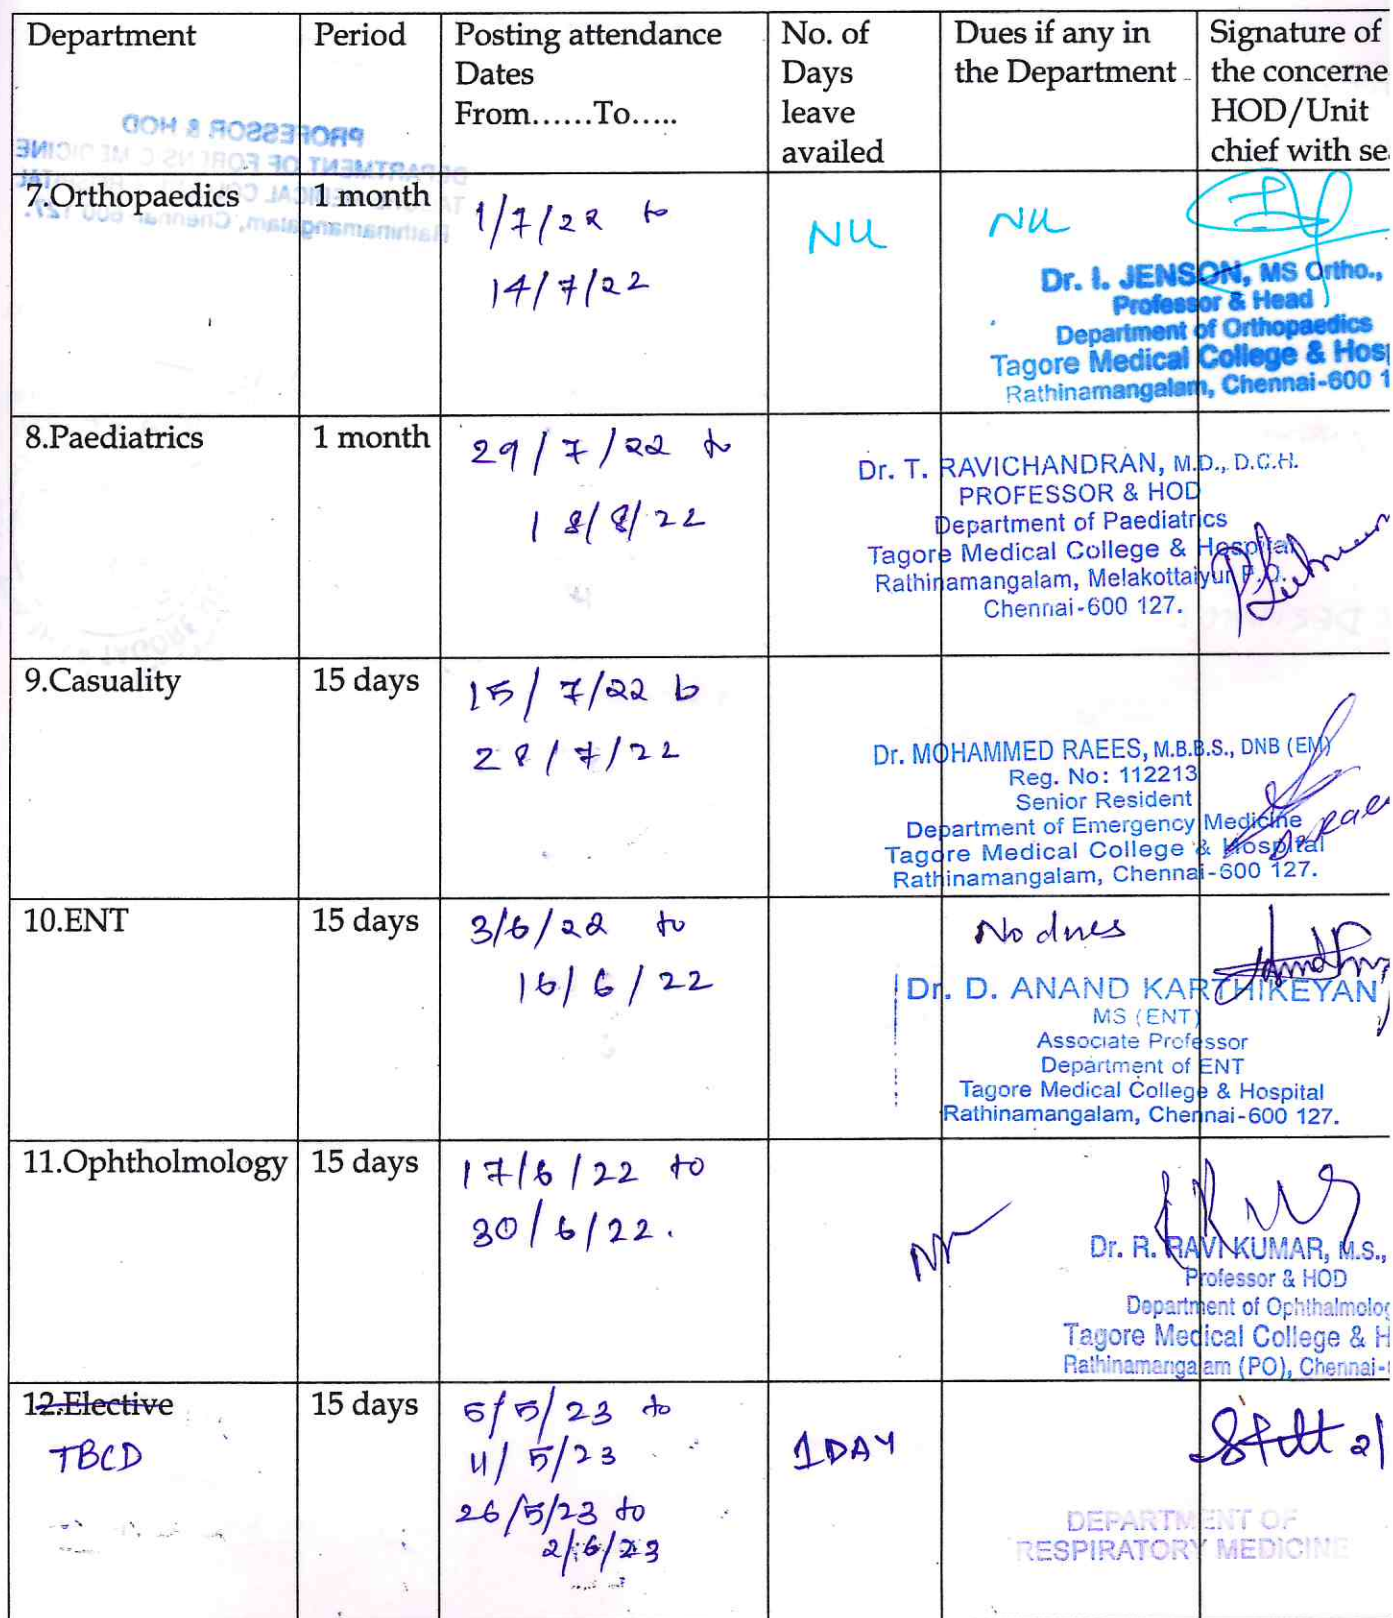 Department
Period
Posting attendance
Dates
From......To.....
No. of
Days
leave
availed
Dues if any in
the Department
Signature of
the concerne
HOD/Unit
chief with se
PROFESSOR & HOD
DEPARTMENT OF FORENSIC MEDICINE
Rathinamangalam, Chennai 600 127.
7.Orthopaedics
1 month
1/7/22 to
14/7/22
NIL
NIL
Dr. I. JENSON, MS Ortho.,
Professor & Head
Department of Orthopaedics
Tagore Medical College & Hosp
Rathinamangalam, Chennai-600 1
8.Paediatrics
1 month
29/7/22 to
18/8/22
Dr. T. RAVICHANDRAN, M.D., D.C.H.
PROFESSOR & HOD
Department of Paediatrics
Tagore Medical College & Hospital
Rathinamangalam, Melakottaiyur P.O.
Chennai-600 127.
9.Casuality
15 days
15/7/22 to
28/7/22
Dr. MOHAMMED RAEES, M.B.B.S., DNB (EM)
Reg. No: 112213
Senior Resident
Department of Emergency Medicine
Tagore Medical College & Hospital
Rathinamangalam, Chennai-600 127.
10.ENT
15 days
3/6/22 to
16/6/22
No dues
Dr. D. ANAND KARTHIKEYAN
MS (ENT)
Associate Professor
Department of ENT
Tagore Medical College & Hospital
Rathinamangalam, Chennai-600 127.
11.Ophtholmology
15 days
17/6/22 to
30/6/22.
Dr. R. RAVI KUMAR, M.S.,
Professor & HOD
Department of Ophthalmolog
Tagore Medical College & H
Rathinamangalam (PO), Chennai-
12.Elective
TBCD
15 days
5/5/23 to
11/5/23
26/5/23 to
2/6/23
1 DAY
DEPARTMENT OF
RESPIRATORY MEDICINE